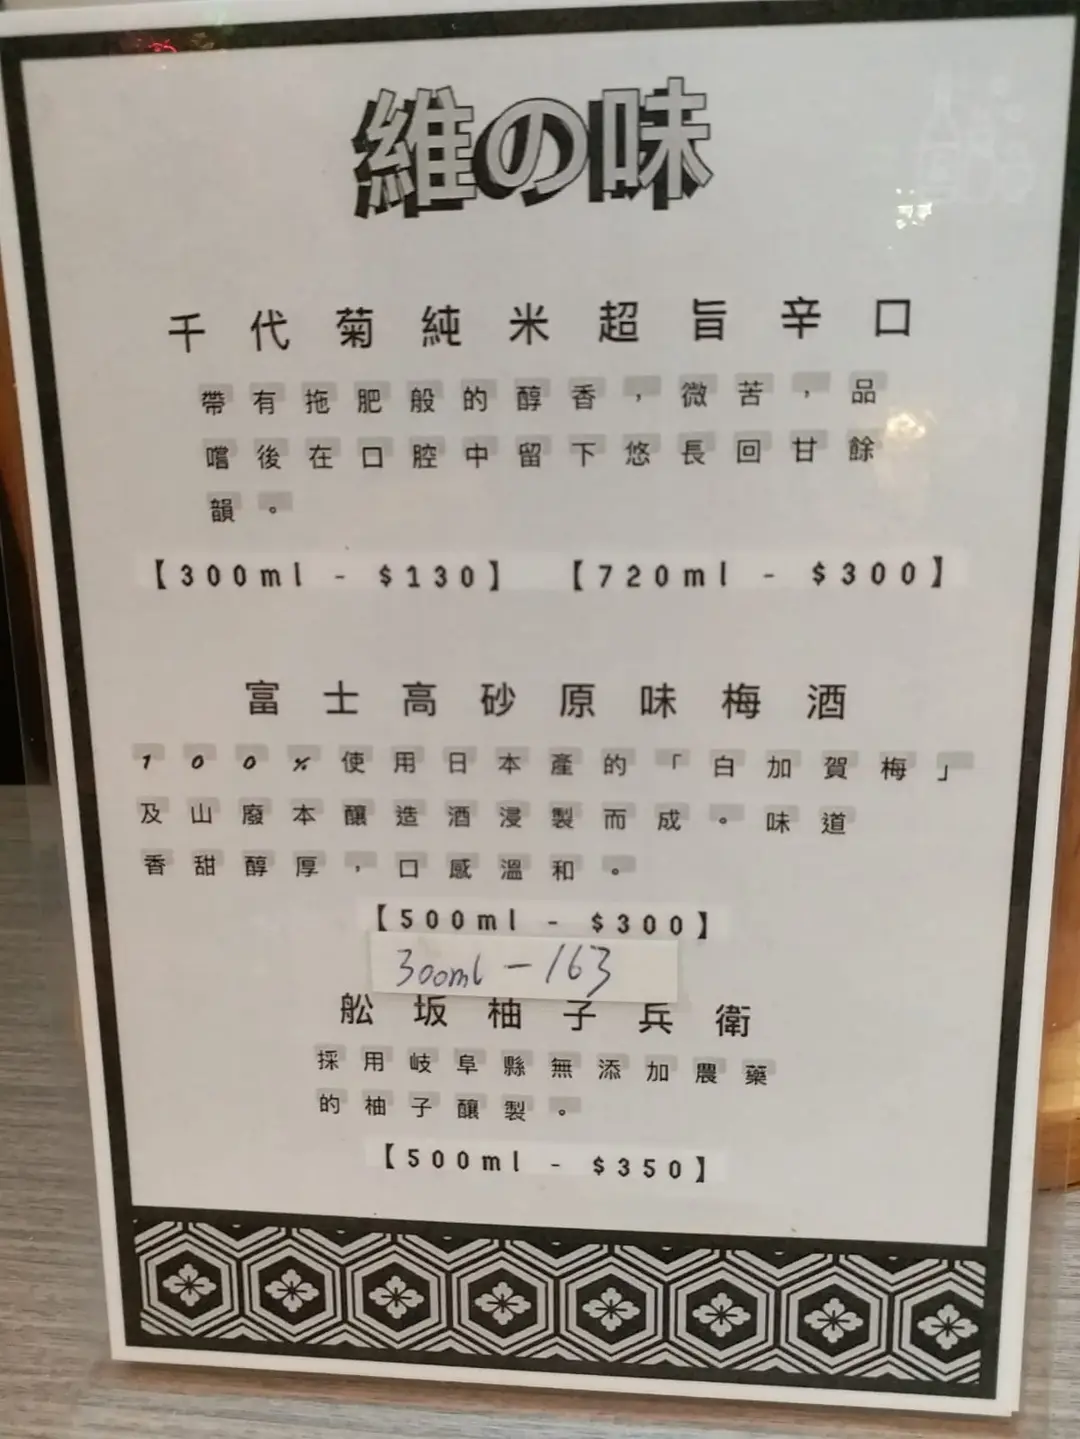 維の味
千代菊純米超旨辛口
帶有拖肥般的醇香，微苦，品
嚐後在口腔中留下悠長回甘餘
韻。
【300ml - $130】 【720ml - $300】
富士高砂原味梅酒
100%使用日本產的「白加賀梅」
及山廢本釀造酒浸製而成。味道
香甜醇厚，口感溫和。
【500ml - $300】
300ml - 163
舩坂柚子兵衛
採用岐阜縣無添加農藥
的柚子釀製。
【500ml - $350】